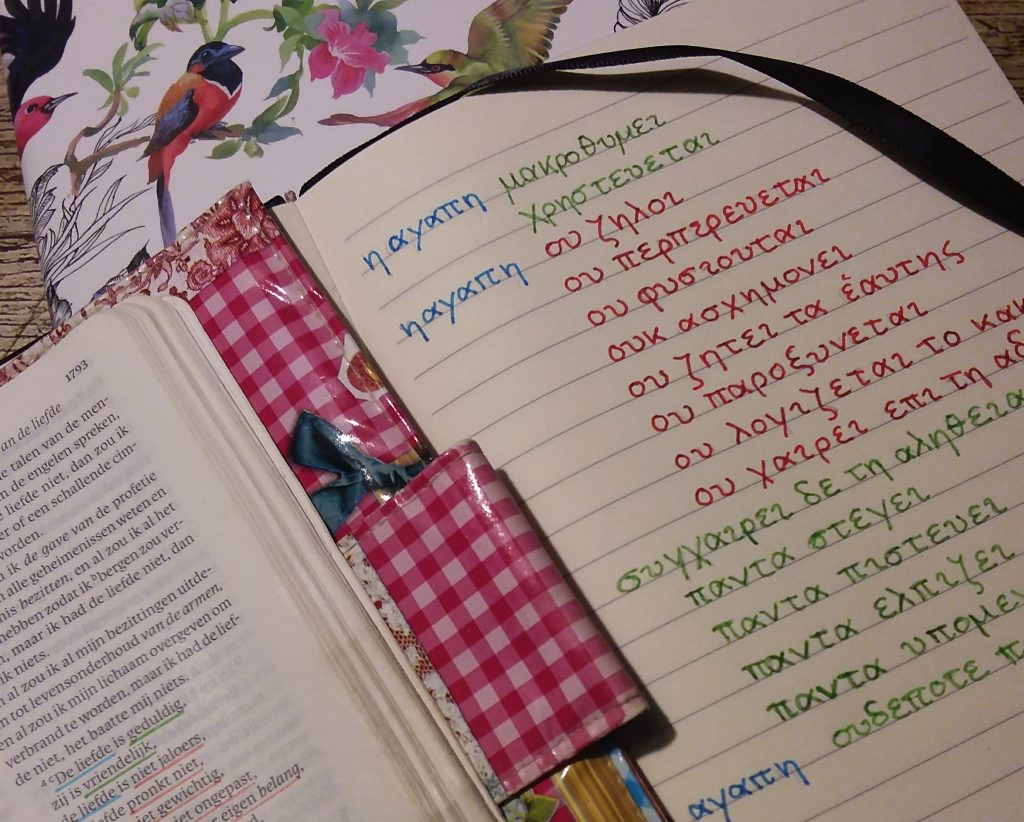 1793
an de liefde
talen van de men-
de engelen spreken,
liefde niet, dan zou ik
of een schallende cim-
worden.
ik de gave van de profetie
alle geheimenissen weten en
bezitten, en al zou ik al het
hebben zodat ik bergen zou ver-
maar ik had de liefde niet, dan
ik niets.
al zou ik al mijn bezittingen uitde-
tot levensonderhoud van de armen,
al zou ik mijn lichaam overgeven om
verbrand te worden, maar ik had de lief-
de niet, het baatte mij niets.
4 De liefde is geduldig,
zij is vriendelijk,
de liefde is niet jaloers,
de liefde pronkt niet,
niet gewichtig,
niet ongepast,
eigen belang,
η αγαπη μακροθυμει
χρηστευεται
η αγαπη ου ζηλοι
ου περπερευεται
ου φυσιουται
ουκ ασχημονει
ου ζητει τα ἑαυτης
ου παροξυνεται
ου λογιζεται το κακ
ου χαιρει επι τη αδ
συγχαιρει δε τη αληθεια
παντα στεγει
παντα πιστευει
παντα ελπιζει
παντα υπομεν
ουδεποτε π
αγαπη